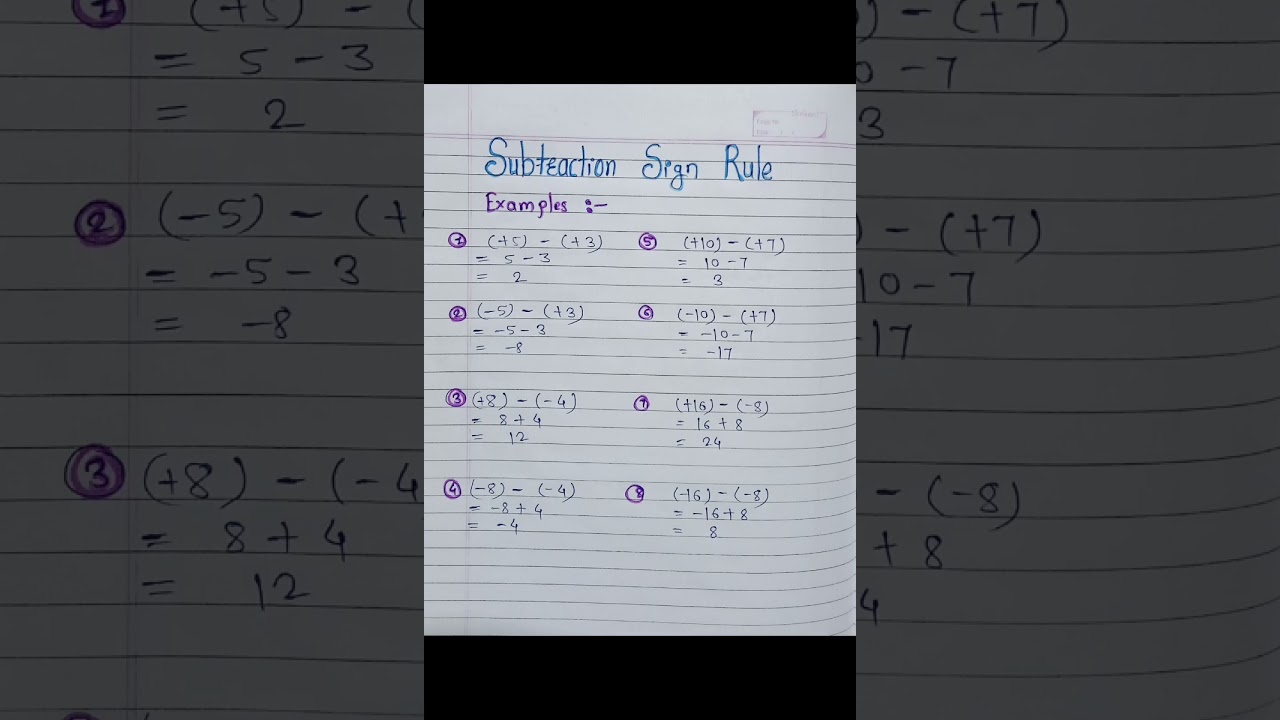 Subtraction Sign Rule
Examples :-
1 (+5) - (+3)
= 5 - 3
= 2
2 (-5) - (+3)
= -5 - 3
= -8
3 (+8) - (-4)
= 8 + 4
= 12
4 (-8) - (-4)
= -8 + 4
= -4
5 (+10) - (+7)
= 10 - 7
= 3
6 (-10) - (+7)
= -10 - 7
= -17
7 (+16) - (-8)
= 16 + 8
= 24
8 (-16) - (-8)
= -16 + 8
= 8